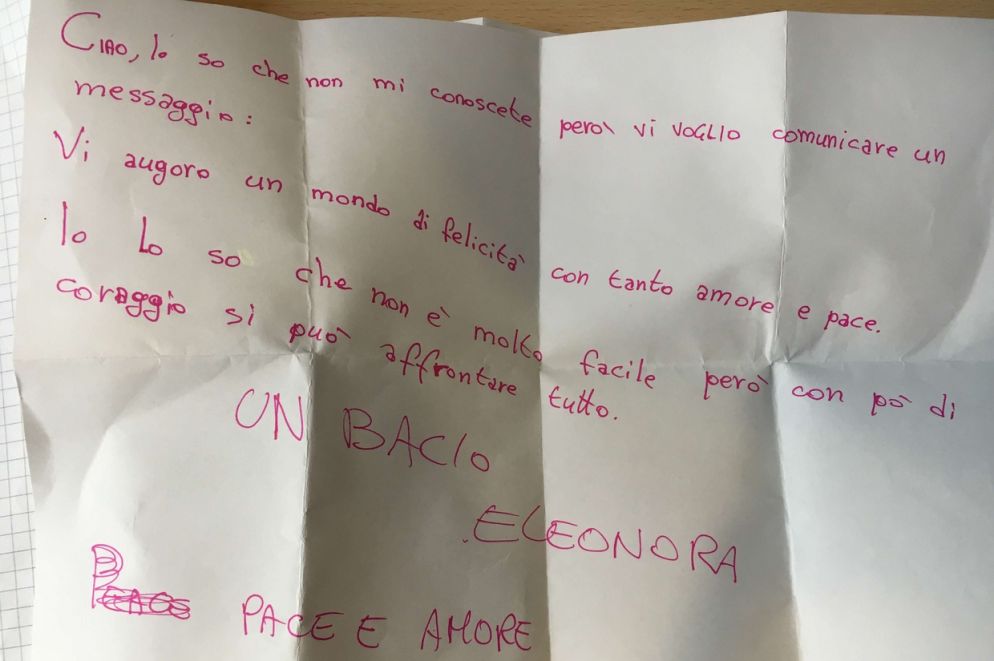 CIAO, Io so che non mi conoscete però vi VOGLIO comunicare un
messaggio:
Vi auguro un mondo di felicità con tanto amore e pace.
Io Lo so che non è molto facile però con pò di
coraggio si può affrontare tutto.
UN BACIO
ELEONORA
PEACE PACE E AMORE